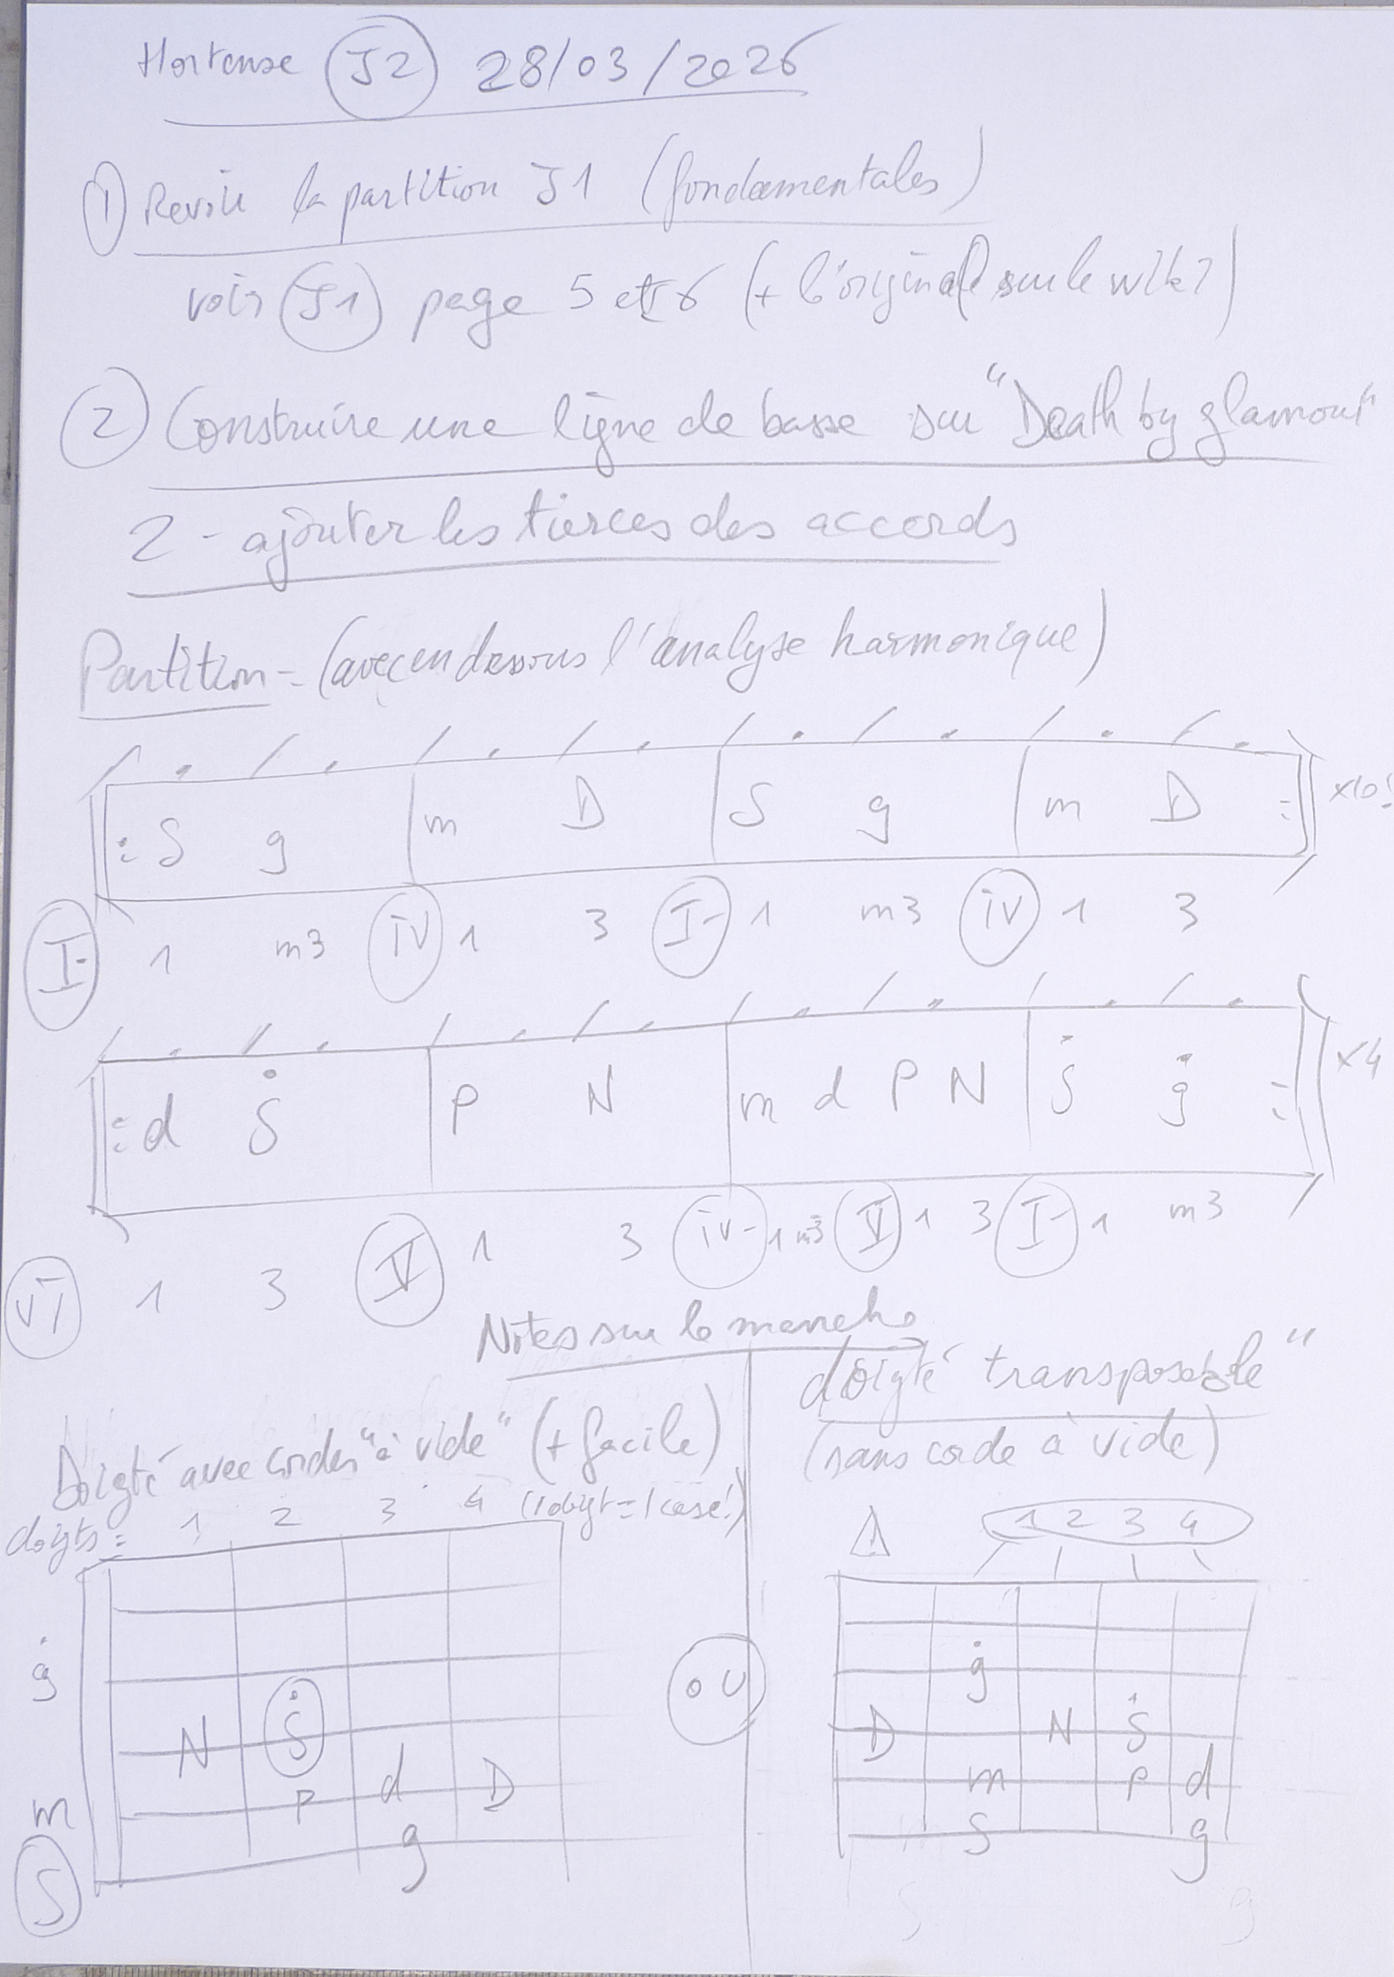 Hortense J2 28/03/2026
① Revoir la partition J1 (fondamentales)
voir J1 page 5 et 6 (+ l'original sur le wiki)
② Construire une ligne de basse sur "Death by glamour"
2 - ajouter les tierces des accords
Partition = (avec en dessous l'analyse harmonique)
: S g | m D | S g | m D :
I- 1 m3 IV 1 3 I- 1 m3 IV 1 3
: d Ṡ | P N | m d P N | Ṡ ġ : x4
VI 1 3 V 1 3 IV- 1 m3 V 1 3 I- 1 m3
Notes sur le manche
Doigté avec cordes "à vide" (+ facile)
doigts = 1 2 3 4 (1 doigt = 1 case!)
ġ
N Ṡ
m P d D
S g
OU
doigté transposable"
(sans corde à vide)
⚠ 1 2 3 4
ġ
D N Ṡ
m P d
S g